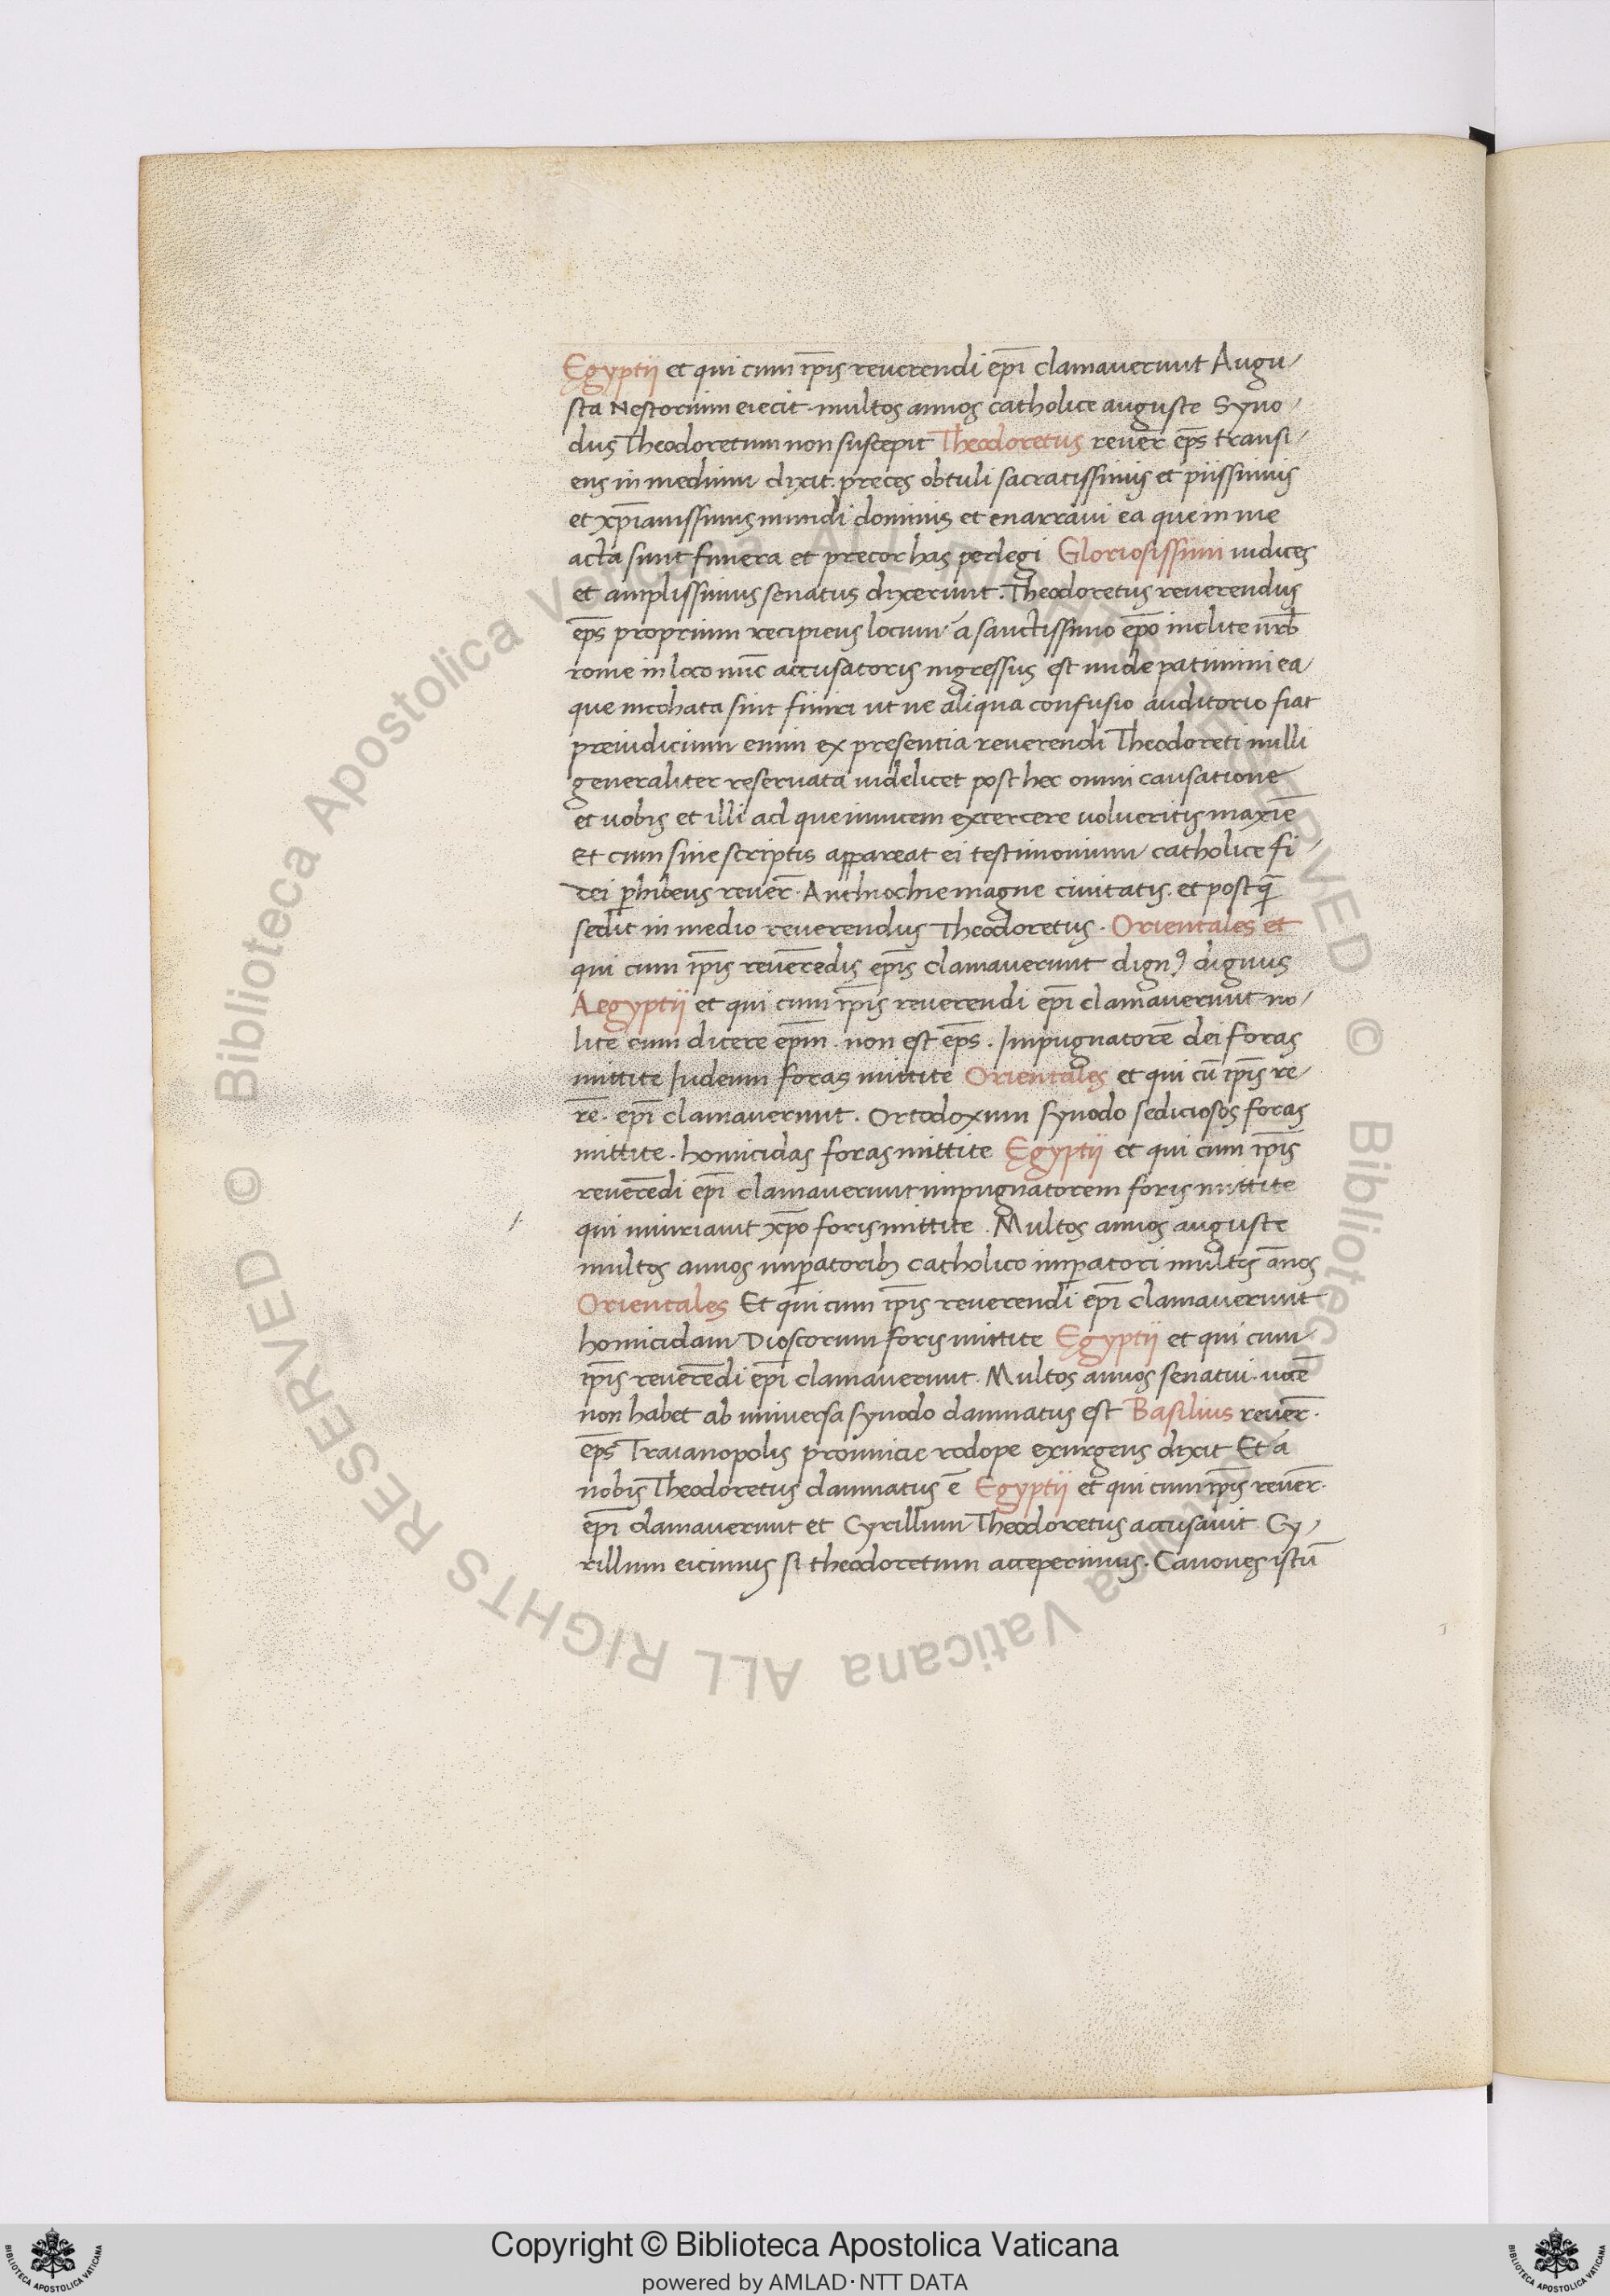 Egyptii et qui cum ip̅is reuerendi ep̅i clamauerunt Augu/
sta Nestorium eiecit · multos annos catholice auguste Syno/
dus Theodoretum non suscepit Theodoretus reuer̅ ep̅s transi/
ens in medium dixit. preces obtuli sacratissimis et piissimis
et xp̅ianissimis mundi dominis et enarraui ea que in me
acta sunt funera et precor has perlegi Gloriosissimi iudices
et amplissimus senatus dixerunt. Theodoretus reuerendus
ep̅s proprium recipiens locum á sanctissimo ep̅o inclite urb̅
rome in loco nu̅c accusatoris ingressus est unde patimini ea
que incohata sint finiri ut ne aliqua confusio auditorio fiat
preiudicium enim ex presentia reuerendi Theodoreti nulli
generaliter reseruata uidelicet post hec omni causatione
et uobis et illi ad que inuicem excercere uolueritis maxi̅e
Et cum sine scriptis appareat ei testimonium catholice fi/
dei p̱hibens reuer̅. Anthiochie magne ciuitatis. et postq̅
sedit in medio reuerendus Theodoretus. Orientales et
qui cum ip̅is reuere̅dis ep̅is clamauerunt dignꝰ dignus
Aegyptii et qui cum ip̅is reuerendi ep̅i clamauerunt no/
lite eum dicere ep̅m. non est ep̅s. Impugnatore̅ dei foras
mittite Iudeum foras mittite Orientales et qui cu̅ ip̅is re/
re̅. ep̅i clamauerunt. Ortodoxum synodo sediciosos foras
mittite. homicidas foras mittite Egyptii et qui cum ip̅is
reuere̅di ep̅i clamauerunt impugnatorem foris mittite
/. qui iniuriauit xp̅o foris mittite. Multos annos auguste
multos annos imp̱atorib; catholico imp̱atori multos a̅nos
Orientales Et qui cum ip̅is reuerendi ep̅i clamauerunt
homicidam Dioscorum foris mittite Egyptii et qui cum
ip̅is reuere̅di ep̅i clamauerunt. Multos annos senatui. uoce̅
non habet ab uniuersa synodo damnatus est Basilius reuer̅.
ep̅s Traianopolis prouincie rodope exurgens dixit Et á
nobis Theodoretus damnatus e̅ Egyptii et qui cum ip̅is reuer̅.
ep̅i clamauerunt et Cyrillum Theodoretus accusauit Cy/
rillum eicimus si theodoretum acceperimus. Canones istu̅
© Biblioteca Apostolica Vaticana ALL RIGHTS RESERVED © Biblioteca Apostolica Vaticana ALL RIGHTS RESERVED
Copyright © Biblioteca Apostolica Vaticana
powered by AMLAD·NTT DATA
BIBLIOTECA APOSTOLICA VATICANA
BIBLIOTECA APOSTOLICA VATICANA